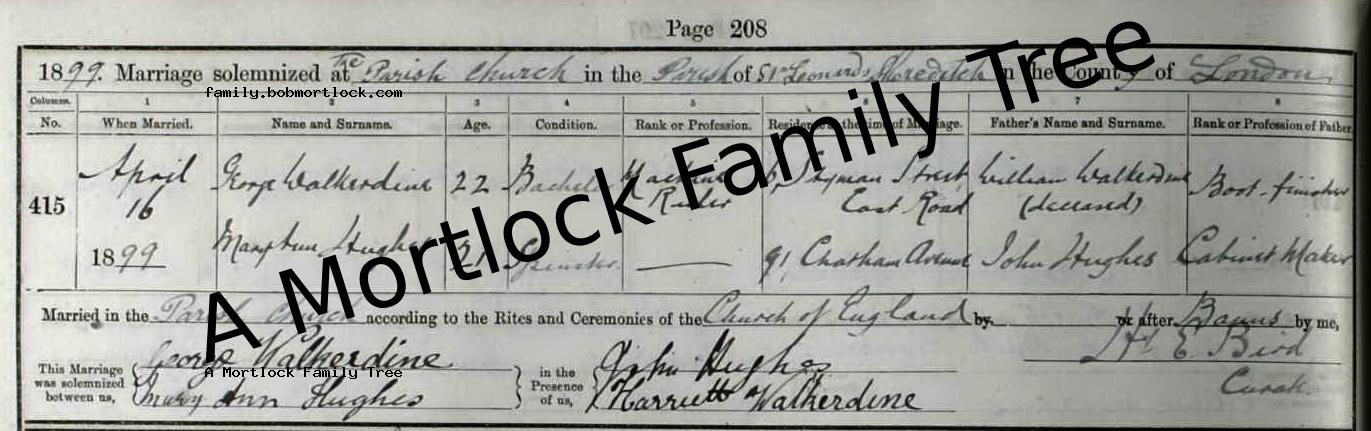 Page 208
1899. Marriage solemnized at the Parish Church in the Parish of St Leonards Shoreditch in the County of London
family.bobmortlock.com
Columns. 1 2 3 4 5 6 7 8
No. When Married. Name and Surname. Age. Condition. Rank or Profession. Residence at the time of Marriage. Father's Name and Surname. Rank or Profession of Father.
415 April 16 1899 George Walkerdine 22 Bachelor Machine Ruler Street East Road William Walkerdine (deceased) Boot-finisher
Mary Ann Hughes 21 Spinster 91, Chatham Avenue John Hughes Cabinet Maker
A Mortlock Family Tree
Married in the Parish Church according to the Rites and Ceremonies of the Church of England by or after Banns by me,
George Walkerdine John Hughes H. E. Bird
This Marriage was solemnized between us, in the Presence of us,
A Mortlock Family Tree
Mary Ann Hughes Harriett Walkerdine Curate.